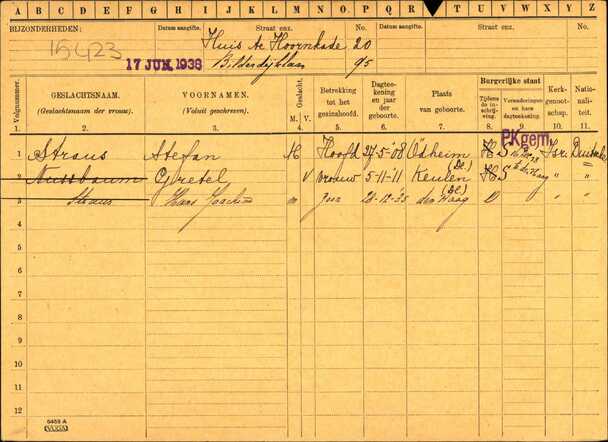 A B C D E F G H I J K L M N O P Q R S T U V W X Y Z
BIJZONDERHEDEN: Datum aangifte. Straat enz. No. Datum aangifte. Straat enz. No.
15423 Huis te Hoornkade 20
17 JUNI 1938 Bilderdijklaan 95
Volgnummer. GESLACHTSNAAM. (Geslachtsnaam der vrouw.) VOORNAMEN. (Voluit geschreven). Geslacht. Betrekking tot het gezinshoofd. Dagteekening en jaar der geboorte. Plaats van geboorte. Burgerlijke staat Tijdens de inschrijving. Veranderingen en hare dagteekening. Kerkgenootschap. Nationaliteit.
1. 2. 3. M. 4. V. 5. 6. 7. 8. 9. 10. 11.
PKgem.
1 Straus Stefan M Hoofd 27-5-'08 Ödheim H S Isr. Duitsche
(Dl.)
2 Nussbaum Gretel V vrouw 5-11-11 Keulen H S " "
(Dl)
3 Straus Hans Joachim m zoon -12-'35 den Haag O " "
4
5
6
7
8
9
10
11
12
6459 A
VUGA